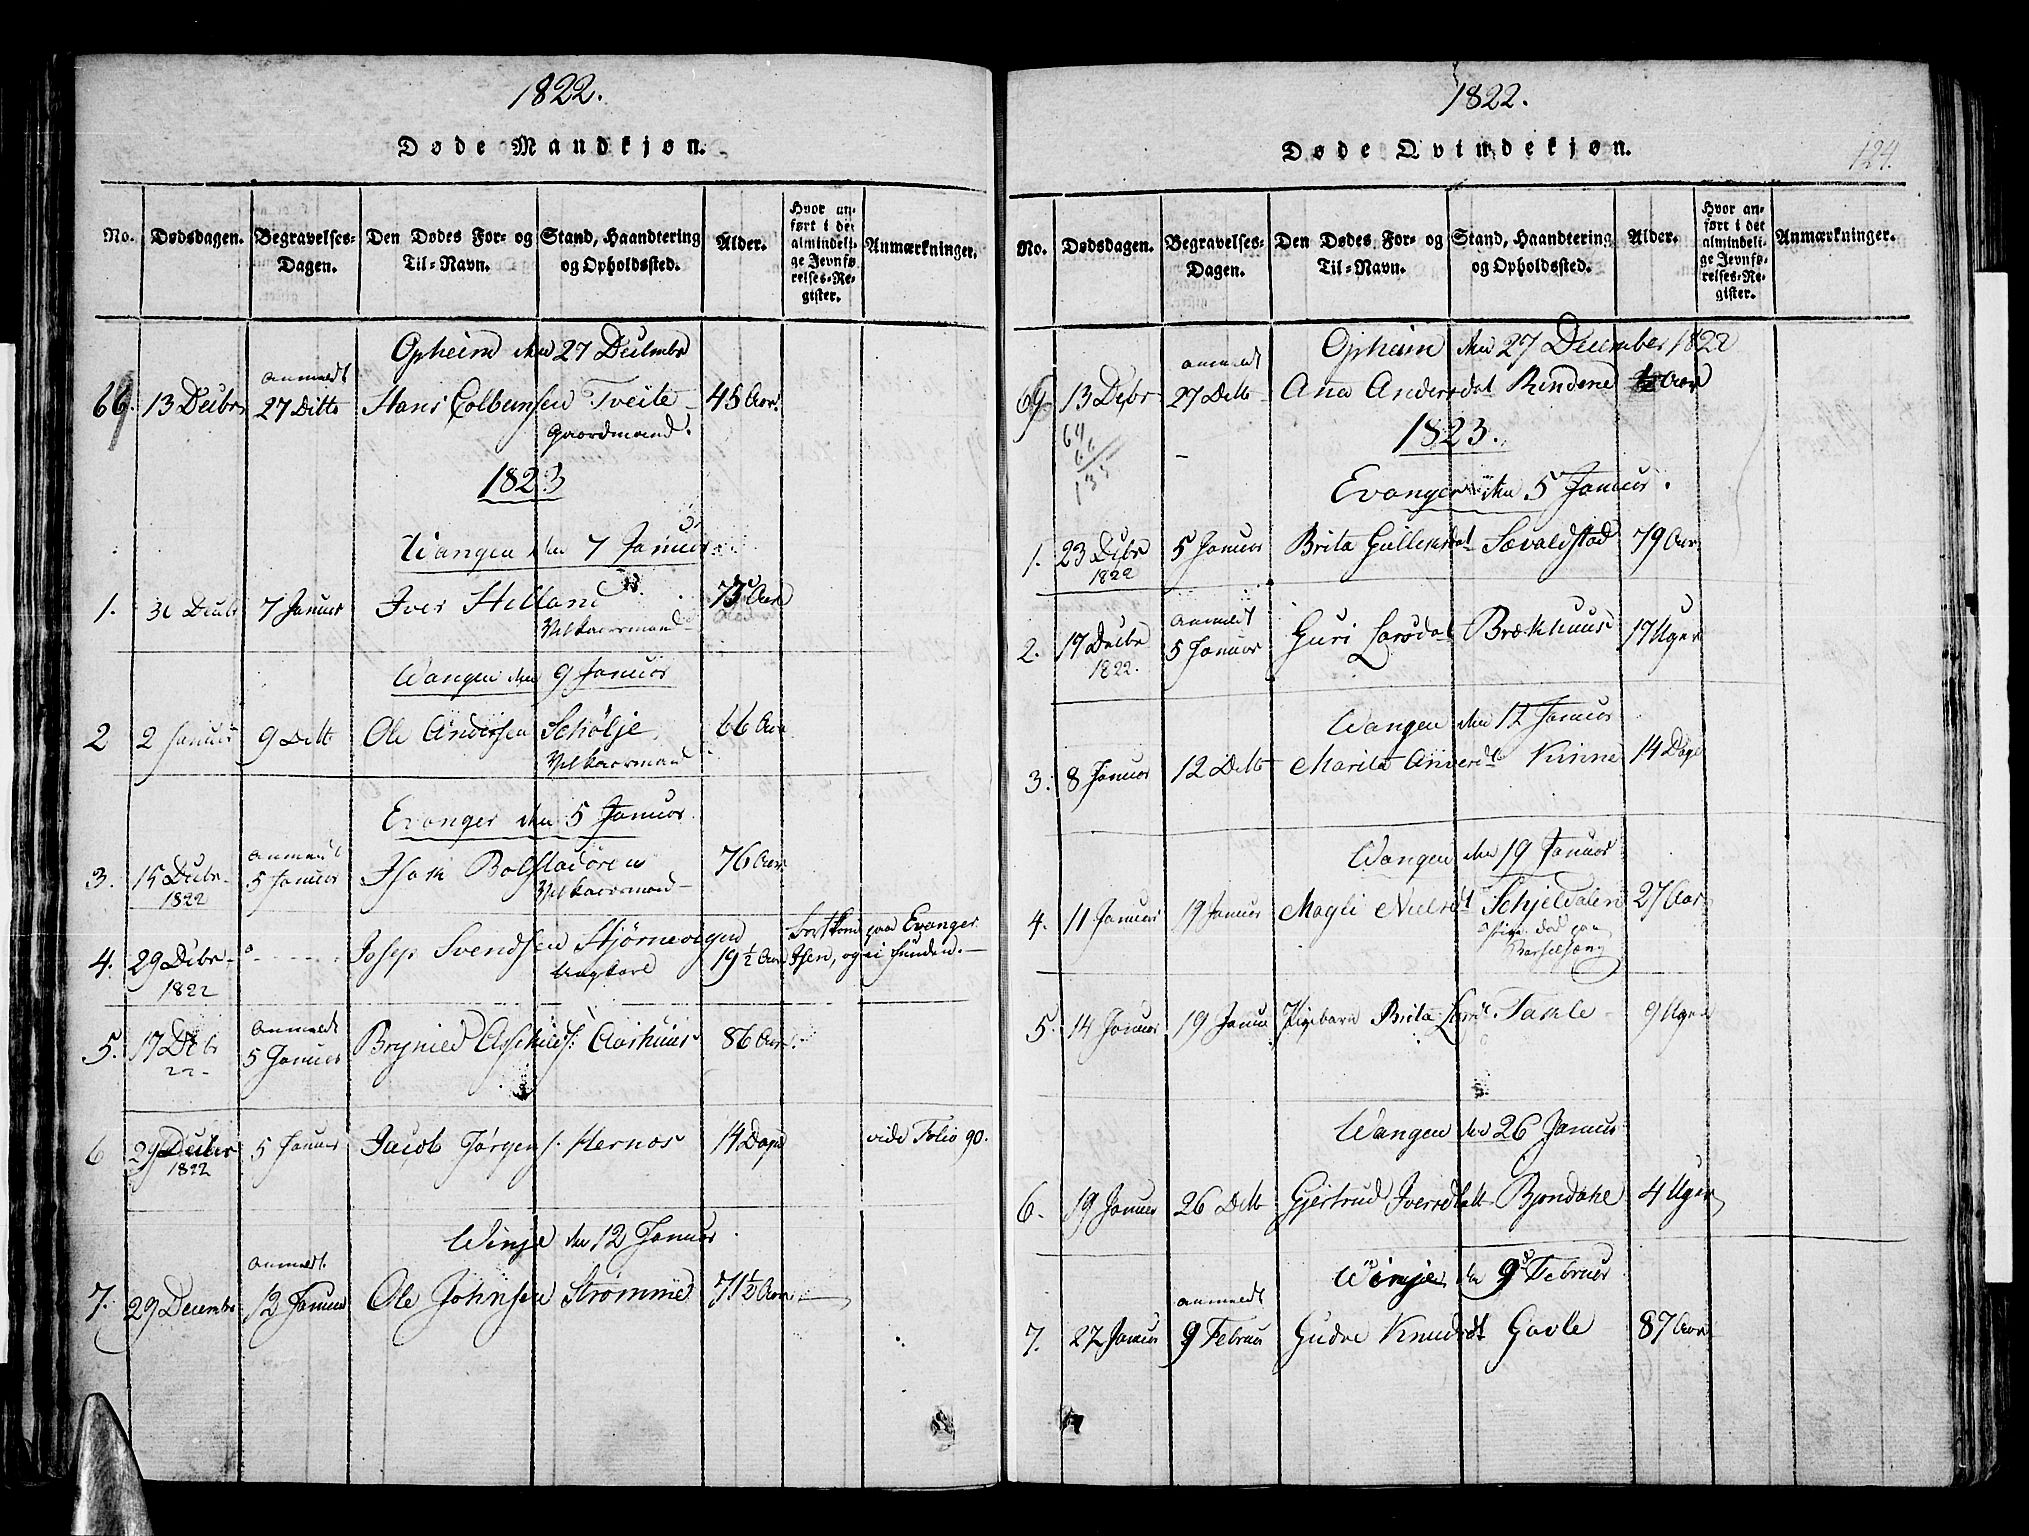 1822.
Døde Mandkjøn.
No.
Dødsdagen.
Begravelses-
Dagen.
Den Dødes For- og
Til-Navn.
Stand, Haandtering
og Opholdssted.
Alder.
Hvor an-
ført i det
almindeli-
ge Jevnfø-
relses-Re-
gister.
Anmærkninger.
Opheim den 27 Decembr
66. 13 Decbr anmeldt 27 Ditto Hans Colbensen Tveite 45 Aar.
Gaardmand.
1823
Wangen den 7 Januar
1. Decbr 7 Januar Iver Helland 73 Aar
Velkaarsmand
Wangen den 9 Januar
2 2 Januar 9 Ditto Ole Andersen Schølje 66 Aar
Velkaarsmand
Evanger den 5 Januar
3. 15 Decbr 1822 anmeldt 5 Januar Isak Bolstadøren 76 Aar
Velkaarsmand
4. 29 Decbr 1822 Josep Svendsen Stjørnevigen 19½ Aar paa Evanger
Ungkarl Isen, og ei funden.
5. 17 Decbr 22 Anmeldt 5 Januar Brynild Aarhuus 86 Aar
6 29 Decbr 1822 5 Januar Jacob Jørgens. Hernes 14 Dage vide Folio 90.
Winje den 12 Januar
7. 29 Decembr anmeldt 12 Januar Ole Johnsen Strømme 71½ Aar
1822.
Døde Qvindekjøn.
124.
No.
Dødsdagen.
Begravelses-
Dagen.
Den Dødes For- og
Til-Navn.
Stand, Haandtering
og Opholdssted.
Alder.
Hvor an-
ført i det
almindeli-
ge Jevnfø-
relses-Re-
gister.
Anmærkninger.
Opheim den 27 December 1822
69 13 Debr anmeldt 27 Ditto Ana Andersdat Rendene Aar
1823.
Evanger den 5 Januar.
1. 23 Decbr 1822 5 Januar Brita Gullensdat Sævaldstad 79 Aar
2. 17 Decbr 1822. anmeldt 5 Januar Guri Larsdat Brækhuus 17 Uger
Wangen den 12 Januar
3. 8 Januar 12 Ditto Marita Kinne 14 Dage
Wangen den 19 Januar
4. 11 Januar 19 Januar Magli Nielsdt Schjeldalen 27 Aar
Pige død paa
Barselsæng
5. 14 Januar 19 Januar Pigebarn Brita Larsd. 9 Uger
Wangen den 26 Januar
6. 19 Januar 26 Ditto Gjertrud Iversdatt Bjøndahl 4 Uger
Winje den 9 Februar
7. 27 Januar anmeldt 9 Februar Gudve Knudsdt Gavle 87 Aar